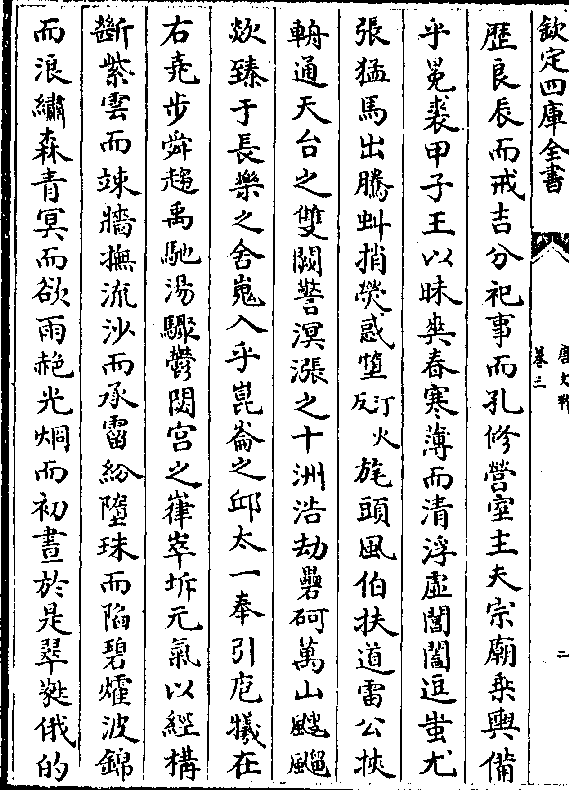 欽定四庫全書
唐文粹
卷三
二
歴良辰而戒吉分祀事而孔修營室主夫宗廟乗輿備
乎冕裘甲子王以昧爽春寒薄而清浮虛閶闔逗蚩尤
張猛馬出騰虯捎熒惑墮汀火反旄頭風伯扶道雷公挾
輈通天台之雙闕警溟漲之十洲浩劫礨砢萬山飀飀
欻臻于長樂之舍嵬入乎崑崙之邱太一奉引庖犧在
右堯步舜趨禹馳湯驟鬱閟宮之嵂崒坼元氣以經構
斷紫雲而竦牆撫流沙而承霤紛墮珠而陷碧爠波錦
而浪繡森青冥而欲雨赩光炯而初晝於是翠蕤俄的